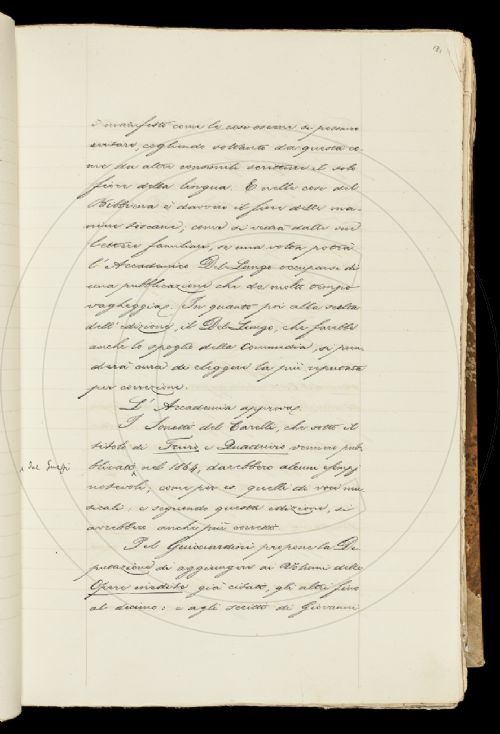 è manifesto come le cose oscene si possano
evitare, cogliendo soltanto da questa co-
me da altre consimili scritture il solo
fiore della lingua. E nelle cose del
Bibbiena è davvero il fiore delle ma-
niere toscane, come si vedrà dalle sue
lettere familiari, se una volta potrà
l'Accademico Del-Lungo occuparsi di
una pubblicazione che da molto tempo
vagheggia. In quanto poi alla scelta
dell'edizione, il Del-Lungo, che farebbe
anche lo spoglio della Commedia, si pren-
derà cura di eleggere la più reputata
per correzione.
L'Accademia approva.
I Sonetti del Carelli, che sotto il
titolo di Terze e Quaderne vennero pub-
blicati nel 1864, darebbero alcuni esempi
notevoli; come per es. quelli di voci mu-
sicali; e seguendo questa edizione, si
avrebbero anche più corretti.
dal Guasti
Pel Guicciardini propone la De-
putazione di aggiungere ai Volumi delle
Opere inedite già citate, gli altri fino
al decimo: e agli scritti di Giovanni